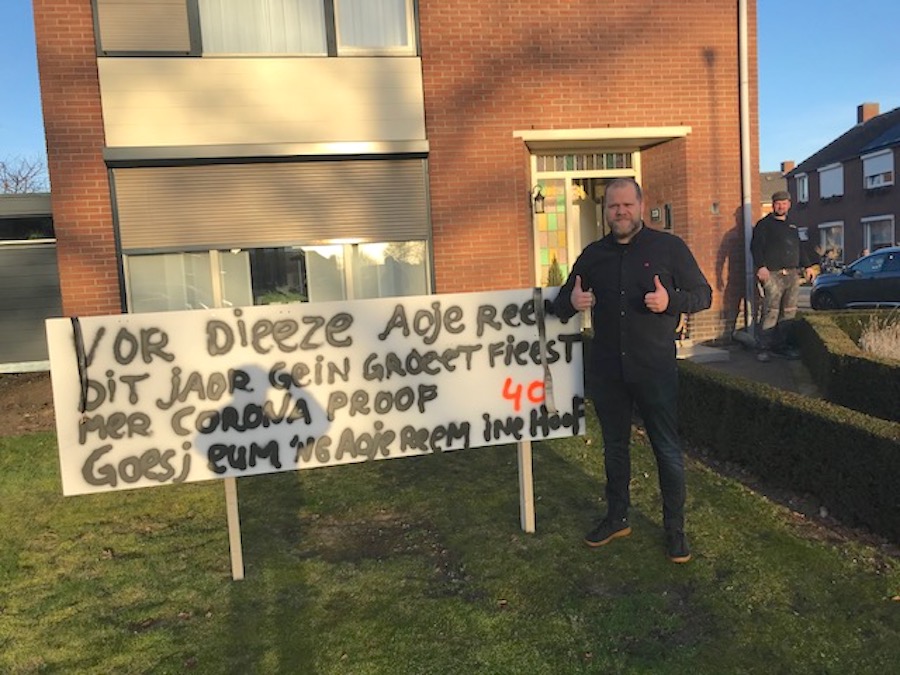 VOR Dieeze Aoje Reem
Dit Jaor Gein Groeet Fieest
Mer Corona Proof 40
Goesj eum 'ne Aoje Reem ine Hoof